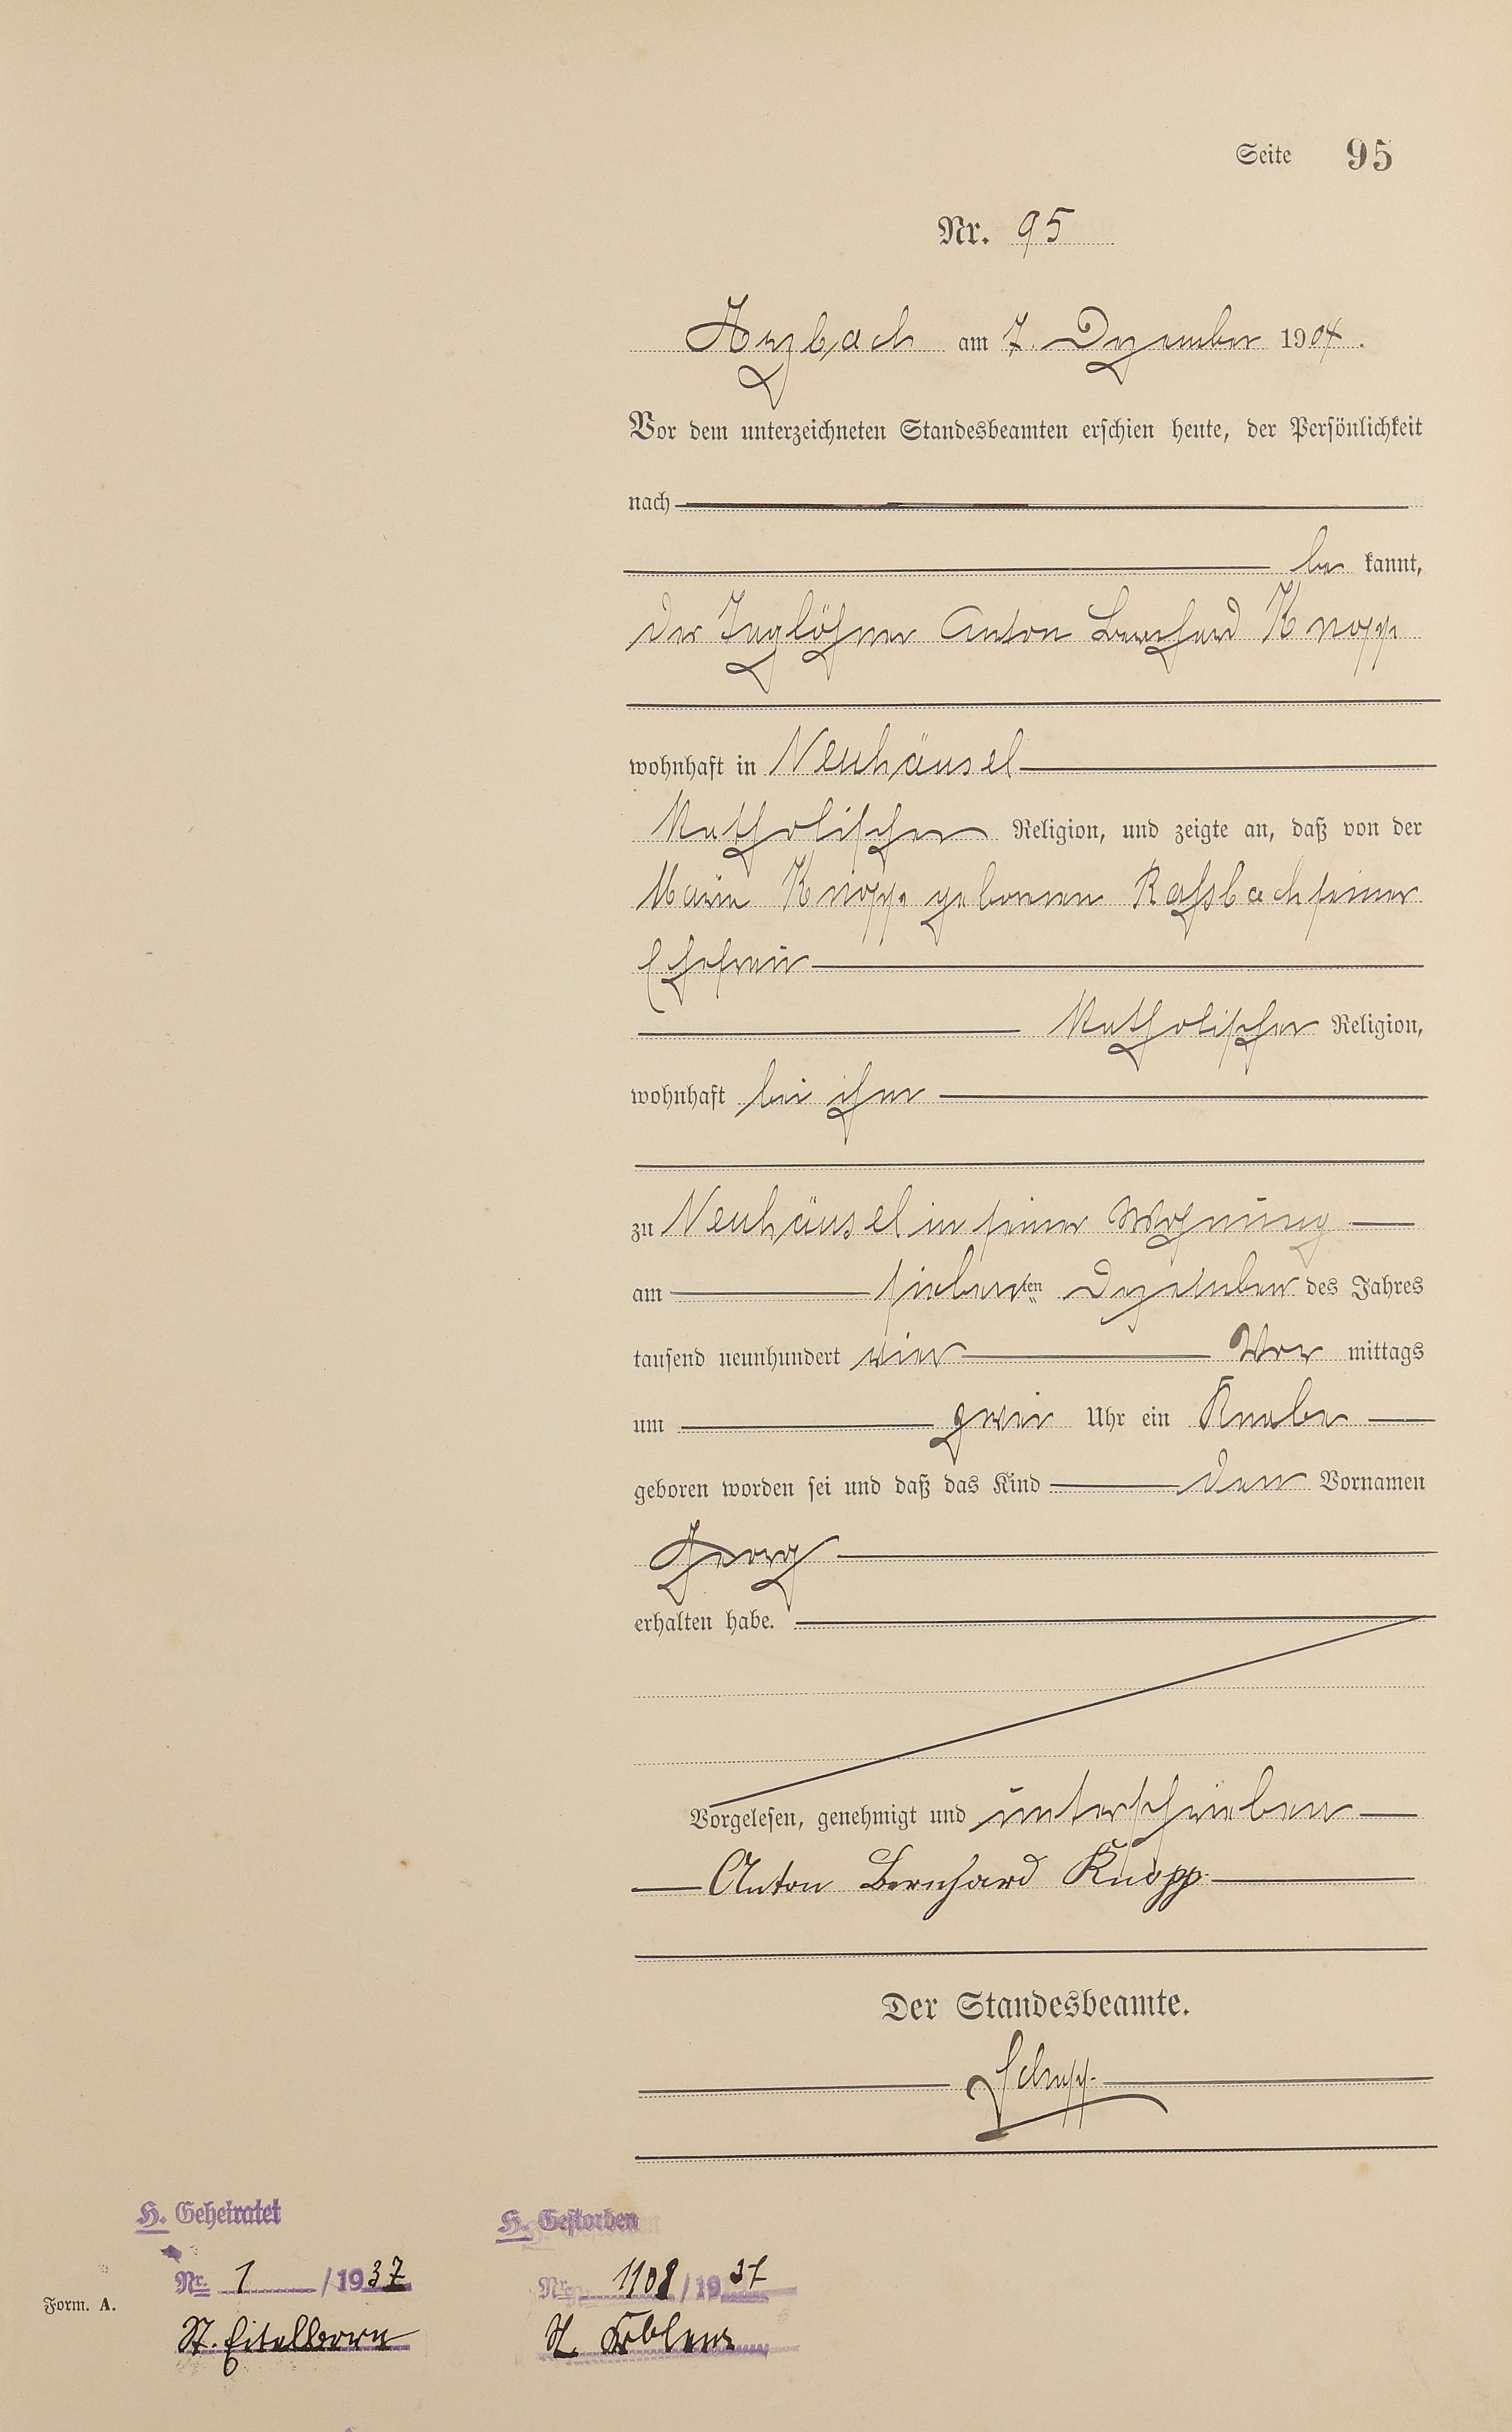 Seite 95
Nr. 95
Arzbach am 7. Dezember 1904.
Vor dem unterzeichneten Standesbeamten erschien heute, der Persönlichkeit
nach
be kannt,
der Taglöhner Anton Bernhard Knopp
wohnhaft in Neuhäusel
Katholischer Religion, und zeigte an, daß von der
Maria Knopp geborenen Rassbach seiner
Ehefrau
Katholischer Religion,
wohnhaft bei ihm
zu Neuhäusel in seiner Wohnung
am siebenten Dezember des Jahres
tausend neunhundert vier Vor mittags
um zwei Uhr ein Knabe
geboren worden sei und daß das Kind den Vornamen
Georg
erhalten habe.
Vorgelesen, genehmigt und unterschrieben
Anton Bernhard Knopp
Der Standesbeamte.
Schupp
H. Geheiratet
Nr. 1 / 1937
St. Eitelborn
H. Gestorben
Nr. 1108 / 1937
St. Koblenz
Form. A.